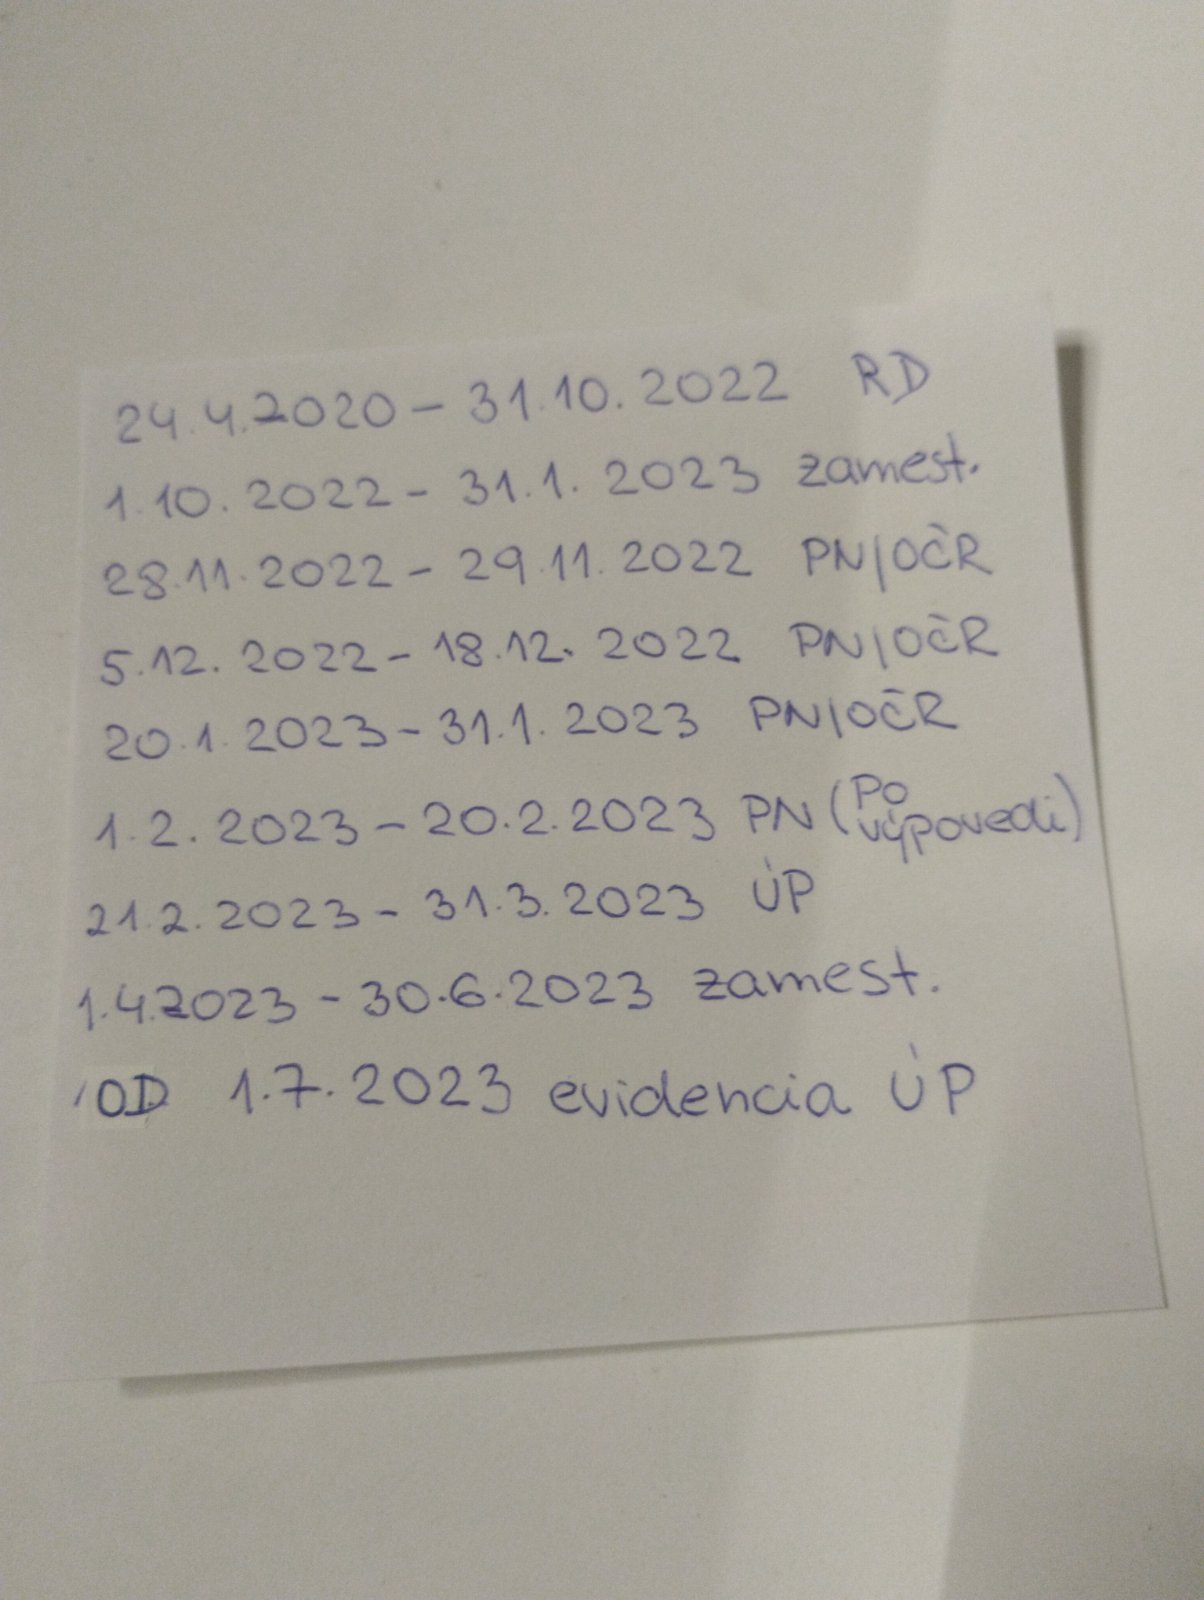 24.4.2020 - 31.10.2022 RD
1.10.2022 - 31.1.2023 zamest.
28.11.2022 - 29.11.2022 PN/OČR
5.12.2022 - 18.12.2022 PN/OČR
20.1.2023 - 31.1.2023 PN/OČR
1.2.2023 - 20.2.2023 PN (Po výpovedi)
21.2.2023 - 31.3.2023 ÚP
1.4.2023 - 30.6.2023 zamest.
OD 1.7.2023 evidencia ÚP